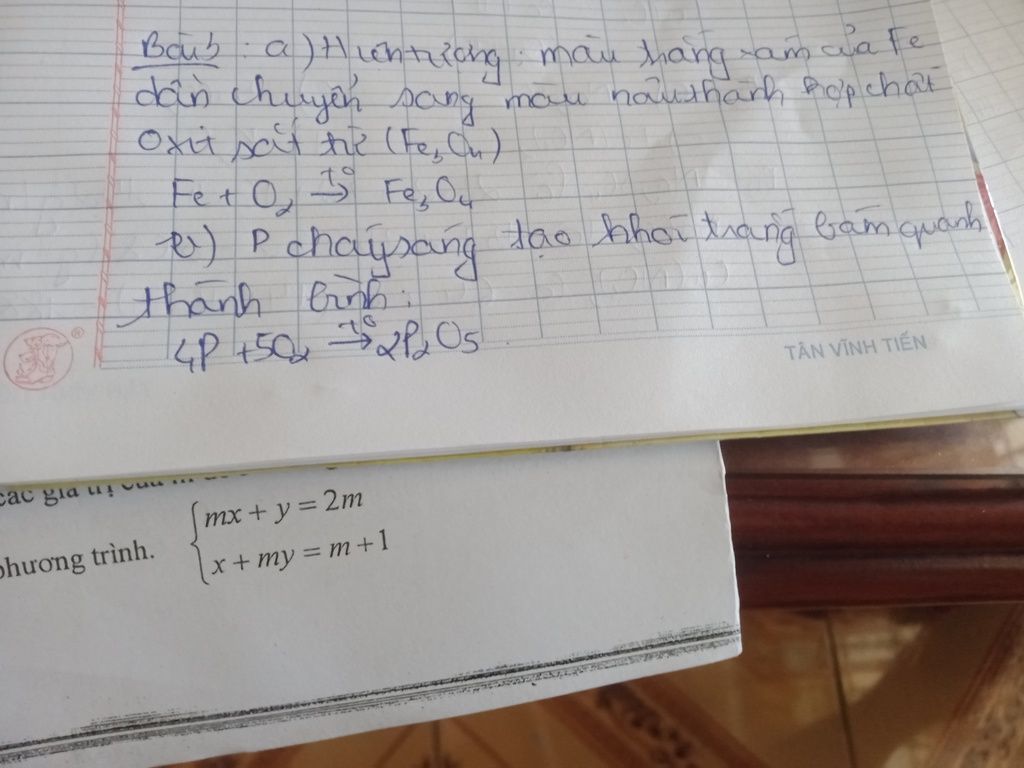 Bài 5: a) Hiện tượng: màu trắng xám của Fe
dần chuyển sang màu nâu thành hợp chất
oxit sắt từ (Fe3O4)
Fe + O2 t° → Fe3O4
b) P cháy sáng tạo khói trắng bám quanh
thành bình.
4P + 5O2 t° → 2P2O5
®
TÂN VĨNH TIẾN
các giá trị của m
phương trình. { mx + y = 2m
x + my = m + 1